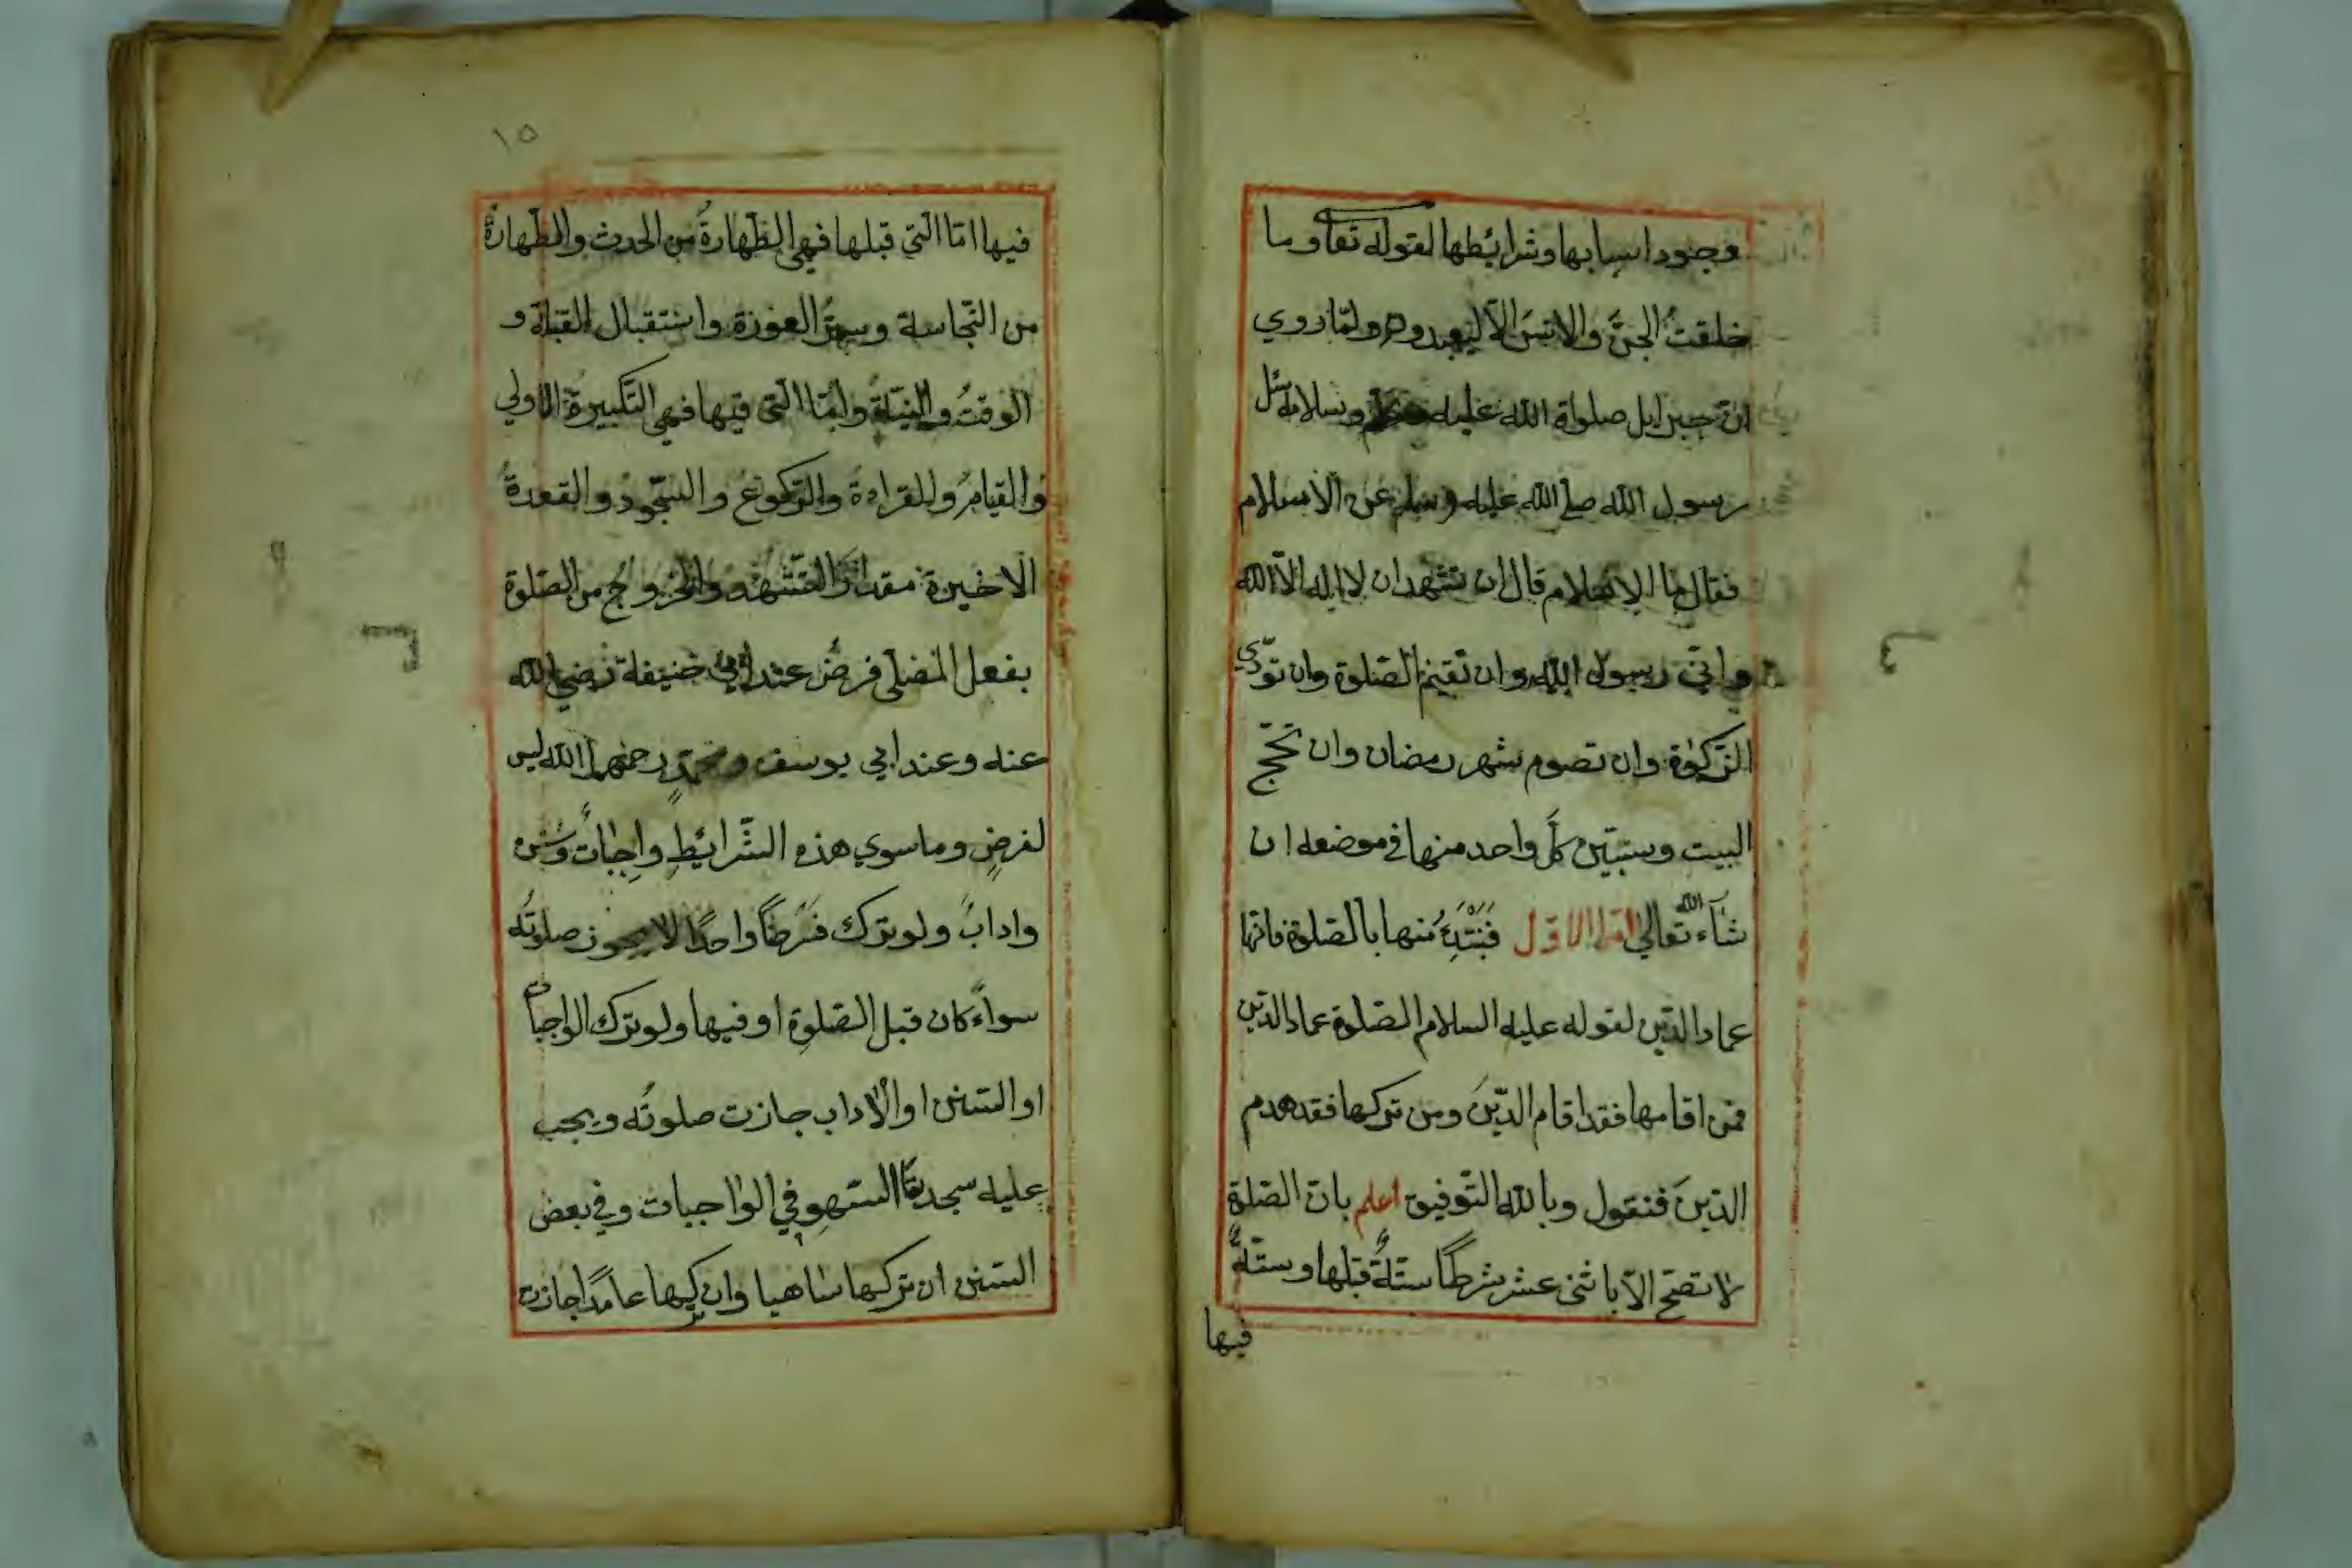 وجنود اسبابها وشرائطها لقوله تعا وما
خلقت الجنّ والانس الّا ليعبدون ولمّا روي
انّ جبرايل صلواة الله عليه وسلامه سئل
رسول الله صلى الله عليه وسلم عن الاسلام
فقال ما الاسلام قال ان تشهد ان لا اله الّا الله
وانّي رسول الله وان تقيم الصّلوة وان تودّي
الزّكوٰة وان تصوم شهر رمضان وان تحجّ
البيت وسنبيّن كلّ واحد منها في موضعه ان
شآء الله تعالي الاوّل فَنَبْتَدِئُ منها بالصّلوة فانّها
عماد الدّين لقوله عليه السلام الصّلوة عماد الدّين
فمن اقامها فقد اقام الدّينَ ومن تركها فقد هدم
الدّينَ فنقول وبالله التّوفيق اعلم بانّ الصّلوة
لا تصحّ الّا باثني عشر شرطًا ستّةٌ قبلها وستّةٌ
فيها
١٥
فيها امّا الّتي قبلها فهي الطّهارةُ من الحدث والطّهارةُ
من النّجاسة وستر العورة واستقبال القبلة و
الوقتُ والنيّةُ وامّا الّتي فيها فهي التّكبيرةُ الاولي
والقيامُ والقراءةُ والرّكوعُ والسّجودُ والقعدةُ
الاخيرة مقدار التّشهّد والخروجُ من الصّلوة
بفعل المُصلّى فرضٌ عند ابي حنيفة رضي الله
عنه وعند ابي يوسف ومحمّدٍ رحمهما الله ليس
لفرضٍ وما سوي هذه الشّرائيطِ واجِباتٌ وسُنن
وادابٌ ولو ترك شرطًا واحدًا لا يجوز صلوتُه
سواءً كان قبل الصّلوةِ او فيها ولو ترك الواجبات
او السّنن او الْاداب جازت صلوتُه ويجب
عليه سجدتا السّهو في الواجبات وفي بعض
السّنن ان تركها ساهيا وان تركها عامدًا جازت